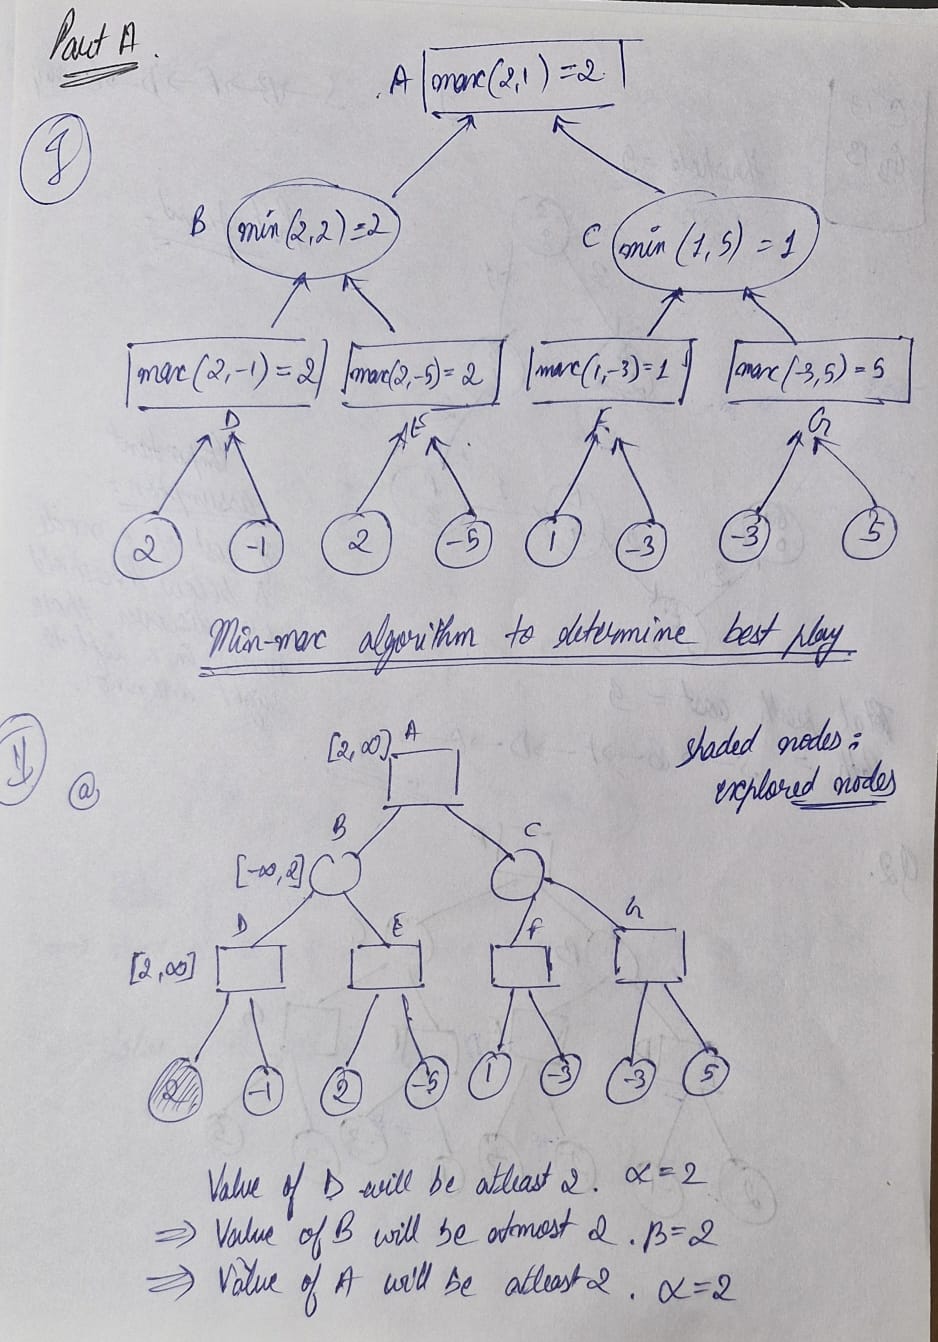 Part A.
I
A max(2,1) = 2
B min(2,2) = 2
C min (1,5) = 1
max(2,-1) = 2 max(2,-5) = 2 max(1,-3) = 1 max(-3,5) = 5
D E F G
2 -1 2 -5 1 -3 -3 5
Min-max algorithm to determine best play.
II
[2,∞] A
shaded nodes :
explored nodes
a
B C
[-∞,2]
D E F G
[2,∞]
2 -1 2 -5 1 -3 -3 5
Value of D will be atleast 2. α=2
⇒ Value of B will be atmost 2. β=2
⇒ Value of A will be atleast 2. α=2